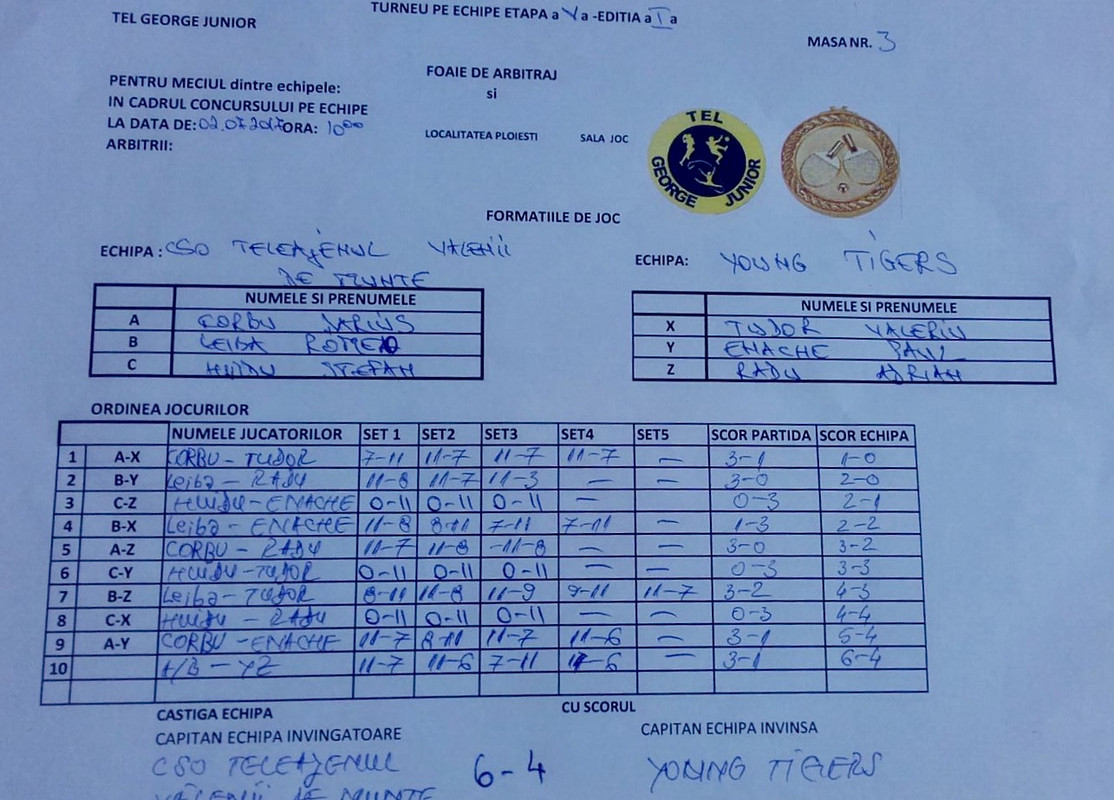 TEL GEORGE JUNIOR
TURNEU PE ECHIPE ETAPA a V a -EDITIA a I a
MASA NR. 3
PENTRU MECIUL dintre echipele:
IN CADRUL CONCURSULUI PE ECHIPE
LA DATA DE: 02.07.2017 ORA: 10⁰⁰
ARBITRII:
FOAIE DE ARBITRAJ
si
LOCALITATEA PLOIESTI SALA JOC
TEL
GEORGE JUNIOR
FORMATIILE DE JOC
ECHIPA: CSO TELEAJENUL VALENII
DE MUNTE
ECHIPA: YOUNG TIGERS
NUMELE SI PRENUMELE
A CORBU DARIUS
B LEIBA ROMEO
C HUIDU STEFAN
NUMELE SI PRENUMELE
X TUDOR VALERIU
Y ENACHE PAUL
Z RADU ADRIAN
ORDINEA JOCURILOR
NUMELE JUCATORILOR SET 1 SET2 SET3 SET4 SET5 SCOR PARTIDA SCOR ECHIPA
1 A-X CORBU - TUDOR 7-11 11-7 11-7 11-7 — 3-1 1-0
2 B-Y Leiba - RADU 11-8 11-7 11-3 — — 3-0 2-0
3 C-Z HUIDU - ENACHE 0-11 0-11 0-11 — 0-3 2-1
4 B-X Leiba - ENACHE 11-8 8-11 7-11 7-11 — 1-3 2-2
5 A-Z CORBU - RADU 11-7 11-8 -11-8 — — 3-0 3-2
6 C-Y HUIDU - TUDOR 0-11 0-11 0-11 — — 0-3 3-3
7 B-Z Leiba - TUDOR 8-11 11-8 11-9 9-11 11-7 3-2 4-3
8 C-X HUIDU - RADU 0-11 0-11 0-11 — — 0-3 4-4
9 A-Y CORBU - ENACHE 11-7 8-11 11-7 11-6 — 3-1 5-4
10 A/B - YZ 11-7 11-6 7-11 11-6 — 3-1 6-4
CASTIGA ECHIPA CU SCORUL
CAPITAN ECHIPA INVINGATOARE CAPITAN ECHIPA INVINSA
CSO TELEAJENUL 6-4 YOUNG TIGERS
VALENII DE MUNTE